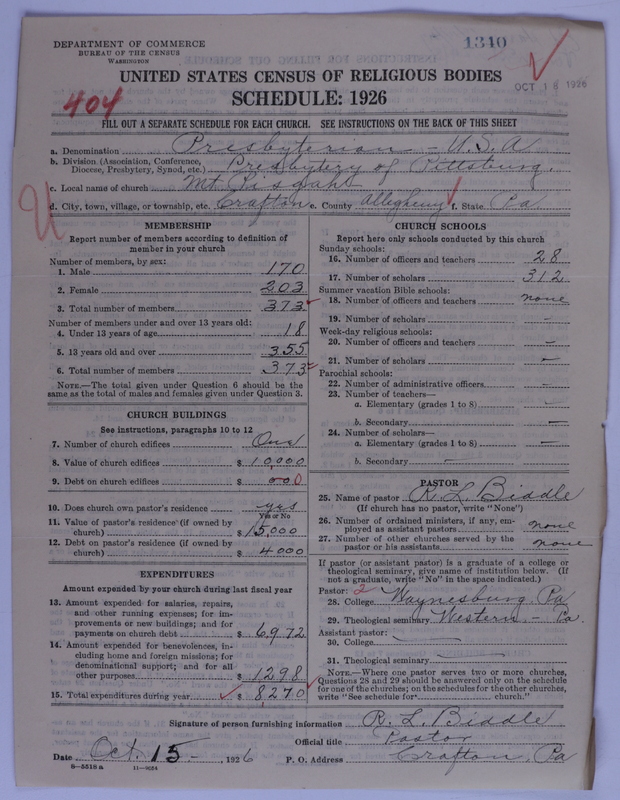 DEPARTMENT OF COMMERCE
BUREAU OF THE CENSUS
WASHINGTON
1340
OCT 18 1926
UNITED STATES CENSUS OF RELIGIOUS BODIES
404
SCHEDULE: 1926
FILL OUT A SEPARATE SCHEDULE FOR EACH CHURCH. SEE INSTRUCTIONS ON THE BACK OF THIS SHEET
a. Denomination Presbyterian - U.S.A
b. Division (Association, Conference, Diocese, Presbytery, Synod, etc.) Presbytery of Pittsburg.
c. Local name of church Mt Pisgah
d. City, town, village, or township, etc. Crafton e. County Allegheny f. State Pa
MEMBERSHIP
Report number of members according to definition of
member in your church
Number of members, by sex:
1. Male 170
2. Female 203
3. Total number of members 373
Number of members under and over 13 years old:
4. Under 13 years of age 18
5. 13 years old and over 355
6. Total number of members 373
NOTE.—The total given under Question 6 should be
same as the total of males and females given under Question 3.
CHURCH BUILDINGS
See instructions, paragraphs 10 to 12
7. Number of church edifices One
8. Value of church edifices $ 10,000
9. Debt on church edifices $ 000 0
10. Does church own pastor's residence yes
Yes or No
11. Value of pastor's residence (if owned by
church) $ 15,000
12. Debt on pastor's residence (if owned by
church) $ 4000
EXPENDITURES
Amount expended by your church during last fiscal year
13. Amount expended for salaries, repairs,
and other running expenses; for im-
provements or new buildings; and for
payments on church debt $ 6972
14. Amount expended for benevolences, in-
cluding home and foreign missions; for
denominational support; and for all
other purposes $ 1298
15. Total expenditures during year $ 8270
CHURCH SCHOOLS
Report here only schools conducted by this church
Sunday schools:
16. Number of officers and teachers 28
17. Number of scholars 312
Summer vacation Bible schools:
18. Number of officers and teachers none
19. Number of scholars -
Week-day religious schools:
20. Number of officers and teachers -
21. Number of scholars -
Parochial schools:
22. Number of administrative officers -
23. Number of teachers—
a. Elementary (grades 1 to 8) -
b. Secondary -
24. Number of scholars—
a. Elementary (grades 1 to 8) -
b. Secondary -
PASTOR
25. Name of pastor R. L. Biddle
(If church has no pastor, write "None")
26. Number of ordained ministers, if any, em-
ployed as assistant pastors none
27. Number of other churches served by the
pastor or his assistants none
If pastor (or assistant pastor) is a graduate of a college or
theological seminary, give name of institution below. (If
not a graduate, write "No" in the space indicated.)
Pastor: 2
28. College Waynesburg, Pa
29. Theological seminary Western - Pa.
Assistant pastor:
30. College -
31. Theological seminary -
NOTE.—Where one pastor serves two or more churches,
Questions 28 and 29 should be answered only on the schedule
for one of the churches; on the schedules for the other churches,
write "See schedule for church."
Signature of person furnishing information R. L. Biddle
Official title Pastor
Date Oct. 15 - 1926 P. O. Address Crafton, Pa
8—5518 a 11—9054